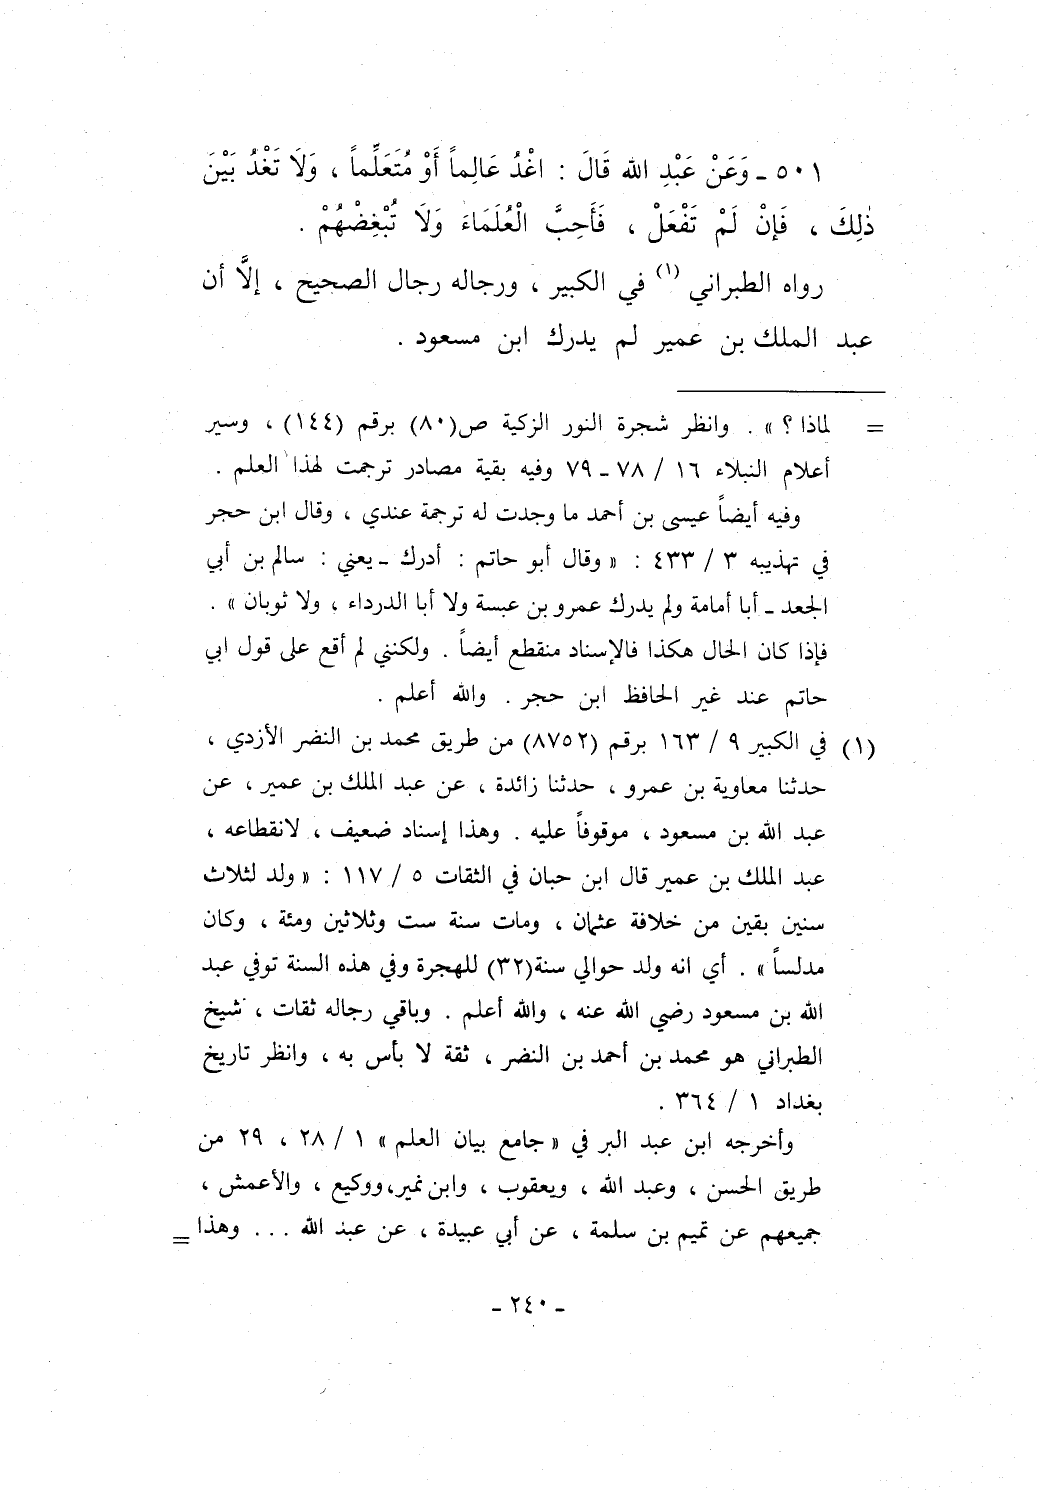 ٥٠١ ـ وَعَنْ عَبْدِ الله قَالَ : اغْدُ عَالِماً أَوْ مُتَعَلِّماً ، وَلَا تَغْدُ بَيْنَ
ذٰلِكَ ، فَإِنْ لَمْ تَفْعَلْ ، فَأَحِبَّ الْعُلَمَاءَ وَلَا تُبْغِضْهُمْ .
رواه الطبراني (١) في الكبير ، ورجاله رجال الصحيح ، إلَّا أن
عبد الملك بن عمير لم يدرك ابن مسعود .
= لماذا ؟ » . وانظر شجرة النور الزكية ص(٨٠) برقم (١٤٤) ، وسير
أعلام النبلاء ١٦ / ٧٨ ـ ٧٩ وفيه بقية مصادر ترجمت لهذا العلم .
وفيه أيضاً عيسى بن أحمد ما وجدت له ترجمة عندي ، وقال ابن حجر
في تهذيبه ٣ / ٤٣٣ : « وقال أبو حاتم : أدرك ـ يعني : سالم بن أبي
الجعد ـ أبا أمامة ولم يدرك عمرو بن عبسة ولا أبا الدرداء ، ولا ثوبان » .
فإذا كان الحال هكذا فالإسناد منقطع أيضاً . ولكنني لم أقع على قول ابي
حاتم عند غير الحافظ ابن حجر . والله أعلم .
(١) في الكبير ٩ / ١٦٣ برقم (٨٧٥٢) من طريق محمد بن النضر الأزدي ،
حدثنا معاوية بن عمرو ، حدثنا زائدة ، عن عبد الملك بن عمير ، عن
عبد الله بن مسعود ، موقوفاً عليه . وهذا إسناد ضعيف ، لانقطاعه ،
عبد الملك بن عمير قال ابن حبان في الثقات ٥ / ١١٧ : « ولد لثلاث
سنين بقين من خلافة عثمان ، ومات سنة ست وثلاثين ومئة ، وكان
مدلساً » . أي انه ولد حوالي سنة(٣٢) للهجرة وفي هذه السنة توفي عبد
الله بن مسعود رضي الله عنه ، والله أعلم . وباقي رجاله ثقات ، شيخ
الطبراني هو محمد بن أحمد بن النضر ، ثقة لا بأس به ، وانظر تاريخ
بغداد ١ / ٣٦٤ .
وأخرجه ابن عبد البر في « جامع بيان العلم » ١ / ٢٨ ، ٢٩ من
طريق الحسن ، وعبد الله ، ويعقوب ، وابن نمير،ووكيع ، والأعمش ،
جميعهم عن تميم بن سلمة ، عن أبي عبيدة ، عن عبد الله ... وهذا =
ـ ٢٤٠ ـ